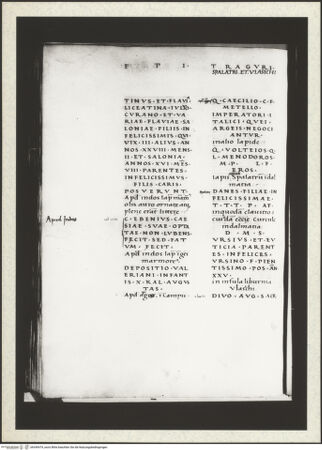 E P I T R A G U R I.
SPALATRI. ET. VLARCHI
TINVS · ET · FLAVI
LICEATINA · IVLIO
CVRANO · ET · VA
RIAE · FLAVIAE · SA
LONIAE · FILIIS · IN
FELICISSIMIS · QVI
VIX · III · ALIVS · AN
NOS · XXVIII · MENS
II · ET · SALONIA ·
ANNOS · XVI · MES
VIII · PARENTES ·
INFELICISSIMVS
FILIIS · CARIS ·
POSVERVNT
Apđ
Apud Indos
C · EBENIVS · CAE
SIAE · SVAE · OPTA
TAE · NON · LVBENS
FECIT · SED · FAT
VM · FECIT ·
Apđ indos
marmore
DEPOSITIO · VAL
ERIANI · INFANT
IS · X · KAL · AVGVS
TAS ·
Q · CAECILIO · C · F ·
METELLO ·
IMPERATORI · I
TALICI · QVEI ·
ARGEIS · NEGOCI
ANTVR ·
inalio lapide
Q · VOLTEIOS · Q
L · MENODOROS
M · P ·
EROS ·
DANES · FILIAE · IN
FELICISSIMAE
T · T · T · P ·
inquoda claustro
D · M · S
VRSIVS · ET · EV
TICIA · PARENT
ES · INFELICES ·
VRSINO · F · PIEN
TISSIMO · POS · AN
XXV ·
in insula liburma
DIVO · AVG · SACR